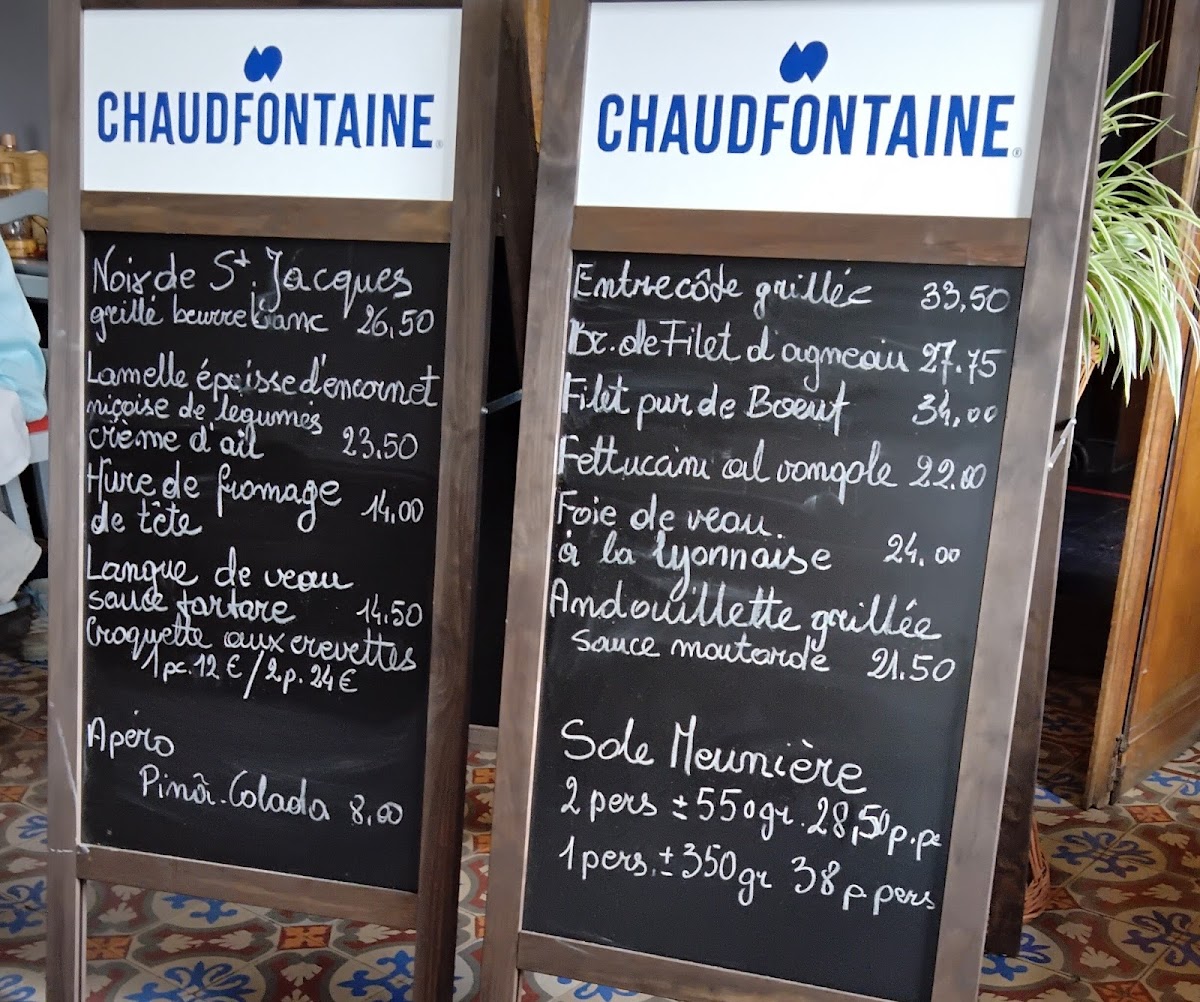 CHAUDFONTAINE®
Noix de St. Jacques
grillé beurre blanc 26,50
Lamelle épaisse d'encornet
niçoise de légumes
crème d'ail 23.50
Hure de fromage
de tête 14.00
Langue de veau
sauce tartare 14.50
Croquette aux crevettes
1 pc. 12 € / 2 p. 24 €
Apéro
Pinã. Colada 8,00
CHAUDFONTAINE®
Entrecôte grillée 33,50
Br. de Filet d'agneau 27.75
Filet pur de Boeuf 34,00
Fettuccini al vongole 22.00
Foie de veau
à la lyonnaise 24.00
Andouillette grillée
sauce moutarde 21.50
Sole Meunière
2 pers ± 550gr. 28,50 p.pe
1 pers. ± 350gr 38 p pers